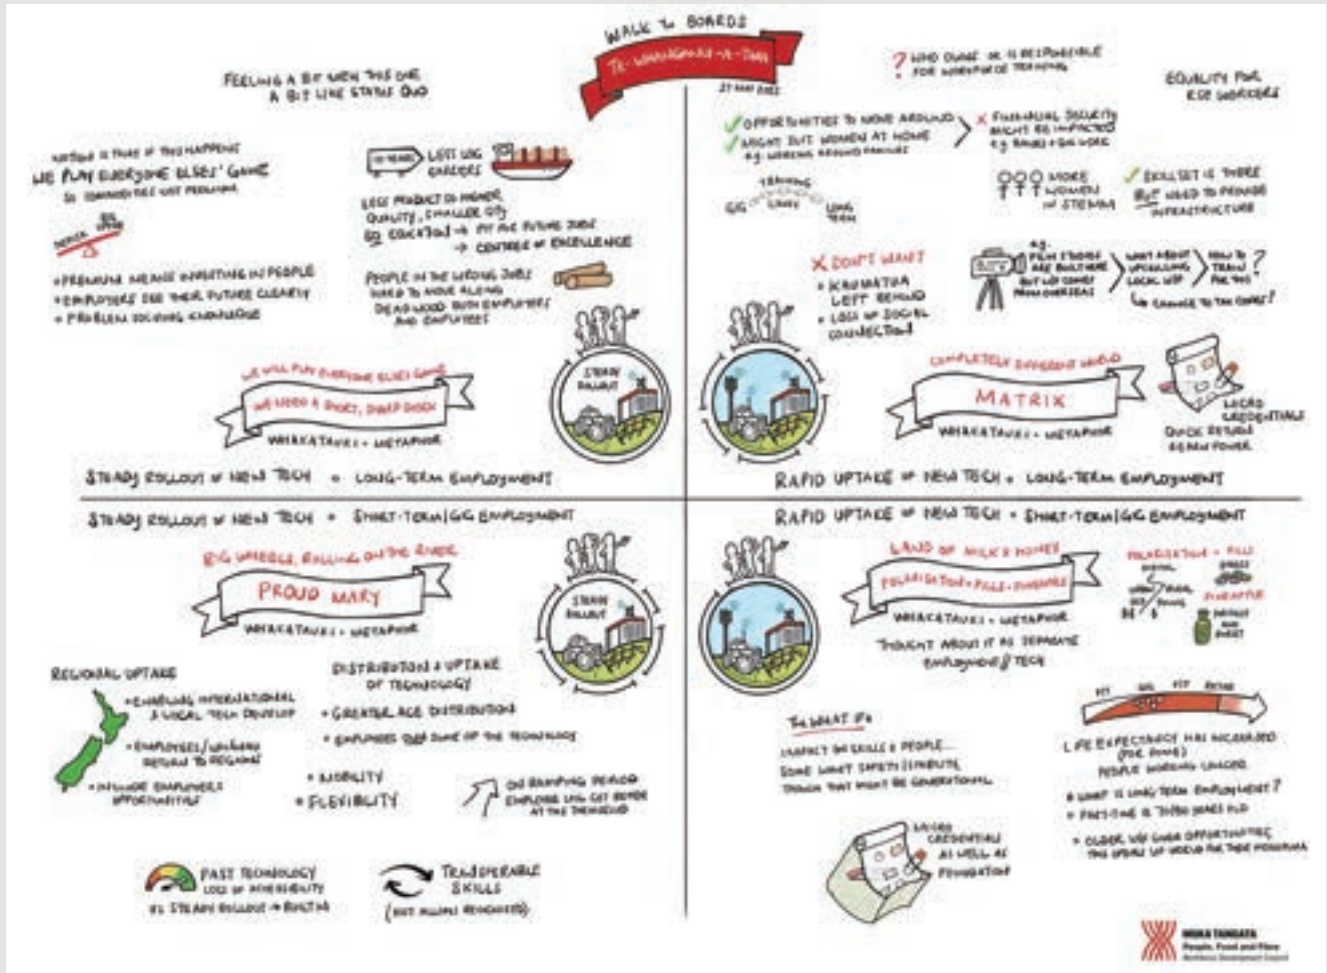 WALK THE BOARDS
TE-WHANGANUI-A-TARA
FEELING A BIT WITH THIS ONE
A BIT LIKE STATUS QUO
NOTION IS THAT IF THIS HAPPENS
WE PLAY EVERYONE ELSES' GAME
SO COMMODITIES NOT PREMIUM
• PREMIUM MEANS INVESTING IN PEOPLE
• EMPLOYERS SEE THEIR FUTURE CLEARLY
• PROBLEM SOLVING KNOWLEDGE
LESS LOG
CARRIERS
LESS PRODUCT OF HIGHER
QUALITY, SMALLER QTY
SO EDUCATION → FIT FOR FUTURE JOBS
→ CENTRES OF EXCELLENCE
PEOPLE IN THE WRONG JOBS
HARD TO MOVE ALONG
DEADWOOD BOTH EMPLOYERS
AND EMPLOYEES
STEADY
ROLLOUT
WE WILL PLAY EVERYONE ELSES GAME
WE NEED A SHORT, SHARP SHOCK
WHAKATAUKI + METAPHOR
STEADY ROLLOUT OF NEW TECH + LONG-TERM EMPLOYMENT
? WHO OWNS OR IS RESPONSIBLE
FOR WORKFORCE TRAINING
EQUALITY FOR
RSE WORKERS
OPPORTUNITIES TO MOVE AROUND
MIGHT SUIT WOMEN AT HOME
e.g. WORKING AROUND FAMILIES
FINANCIAL SECURITY
MIGHT BE IMPACTED
e.g. BANKS + GIG WORK
TRAINING
GIG
LONG
TERM
MORE
WOMEN
IN STEMM
SKILLSET IS THERE
BUT NEED TO PROVIDE
INFRASTRUCTURE
DON'T WANT
• KAUMATUA
LEFT BEHIND
• LOSS OF SOCIAL
CONNECTION
e.g.
FILM STUDIOS
ARE BUILT HERE
BUT WF COMES
FROM OVERSEAS
WHAT ABOUT
UPSKILLING
LOCAL WF?
HOW TO
TRAIN
FOR THIS?
CHANGE TO TAX CODES?
COMPLETELY DIFFERENT WORLD
MATRIX
WHAKATAUKI + METAPHOR
MICRO
CREDENTIALS
QUICK RETURN
EARN POWER
RAPID UPTAKE OF NEW TECH + LONG-TERM EMPLOYMENT
STEADY ROLLOUT OF NEW TECH + SHORT-TERM/GIG EMPLOYMENT
BIG WHEELS, ROLLING ON THE RIVER
PROUD MARY
WHAKATAUKI + METAPHOR
STEADY
ROLLOUT
REGIONAL UPTAKE
• ENABLING INTERNATIONAL
& LOCAL TECH DEVELOP
RETURN TO REGIONS
• INCLUDE EMPLOYERS
OPPORTUNITIES
DISTRIBUTION & UPTAKE
OF TECHNOLOGY
• GREATER AGE DISTRIBUTION
• EMPLOYEES OWN SOME OF THE TECHNOLOGY
• MOBILITY
• FLEXIBILITY
ON RAMPING PERIOD
FAST TECHNOLOGY
LOSS OF ACCESSIBILITY
VS STEADY ROLLOUT → BUILT IN
TRANSFERABLE
SKILLS
(NOT ALWAYS RECOGNISED)
RAPID UPTAKE OF NEW TECH + SHORT-TERM/GIG EMPLOYMENT
LAND OF MILK & HONEY
POLARISATION + PILLS + PINEAPPLE
WHAKATAUKI + METAPHOR
THOUGHT ABOUT IT AS SEPARATE
EMPLOYMENT // TECH
POLARISATION + PILLS
PINEAPPLE
THE WHAT IFs
IMPACT ON SKILLS & PEOPLE...
SOME WANT SAFETY/STABILITY
THOUGH THAT MIGHT BE GENERATIONAL
MICRO
CREDENTIALS
AS WELL AS
FOUNDATION
LIFE EXPECTANCY HAS INCREASED
(FOR SOME)
PEOPLE WORKING LONGER
• WHAT IS LONG TERM EMPLOYMENT?
MUKA TANGATA
People, Food and Fibre
Workforce Development Council